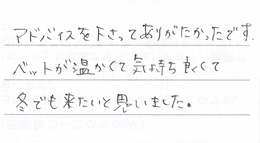 アドバイスを下さってありがたかったです.
ベットが温かくて気持ち良くて
冬でも来たいと思いました。